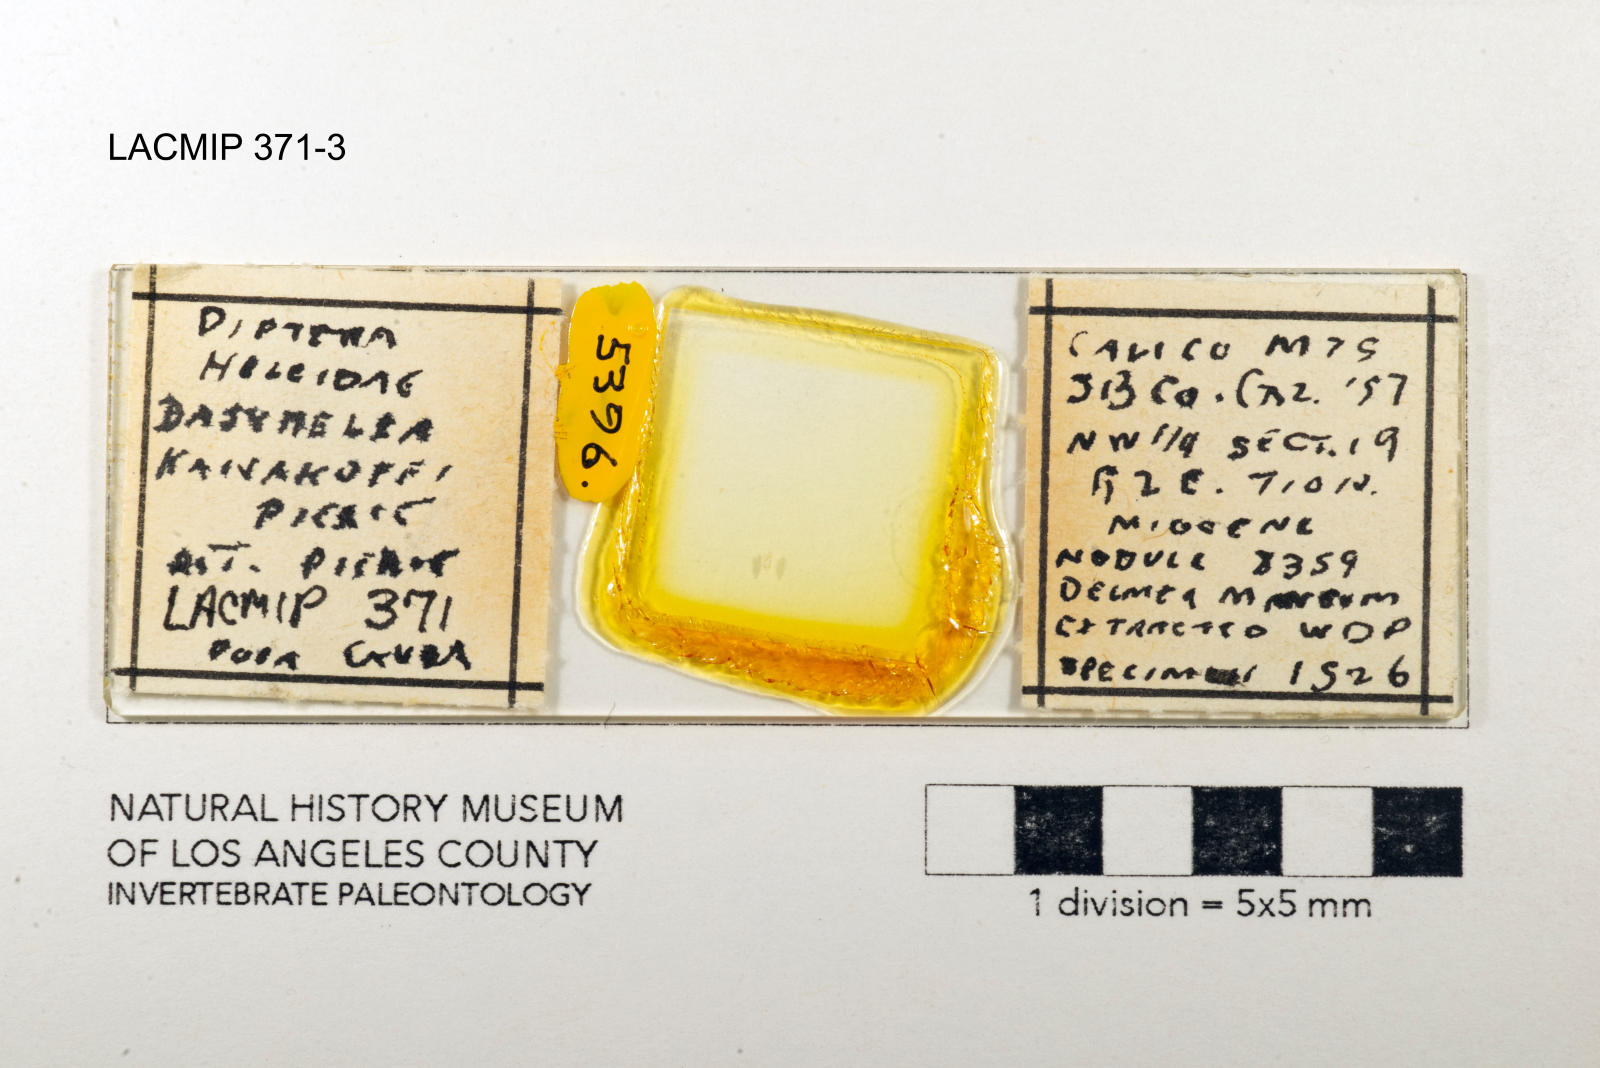 LACMIP 371-3
DIPTERA
HELEIDAE
DASYHELEA
KANAKOFFI
PIERCE
DET. PIERCE
LACMIP 371
PUPA
5396.
CALICO MTS
SB CO. CAL. '57
NW 1/4 SECT. 19
R 2 E. T 10 N.
MIOCENE
NODULE 8359
EXTRACTED WDP
SPECIMEN 1526
NATURAL HISTORY MUSEUM
OF LOS ANGELES COUNTY
INVERTEBRATE PALEONTOLOGY
1 division = 5x5 mm